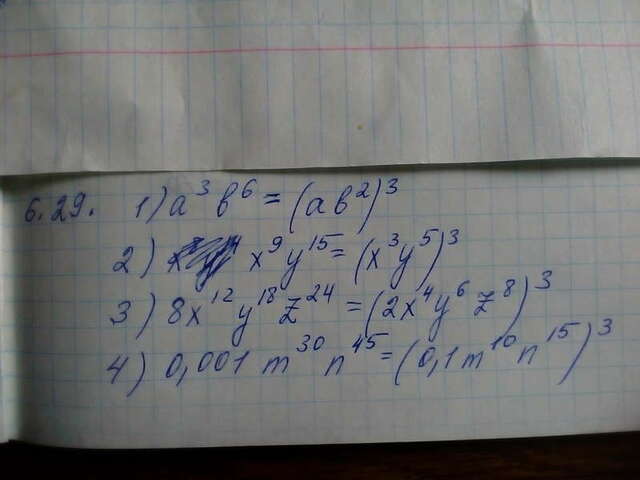 6.29. 1) a³ b⁶ = (ab²)³
2) x⁹y¹⁵ = (x³y⁵)³
3) 8x¹²y¹⁸z²⁴ = (2x⁴y⁶z⁸)³
4) 0,001 m³⁰n⁴⁵ = (0,1m¹⁰n¹⁵)³